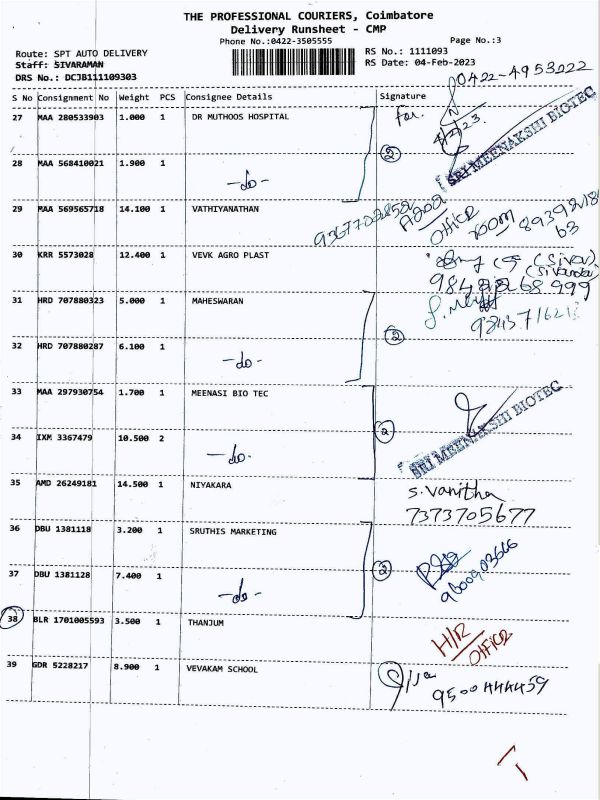 THE PROFESSIONAL COURIERS, Coimbatore
Delivery Runsheet - CMP
Phone No.:0422-3505555
Page No.:3
Route: SPT AUTO DELIVERY
RS No.: 1111093
Staff: SIVARAMAN
RS Date: 04-Feb-2023
DRS No.: DCJB111109303
0422-4953222
S No Consignment No Weight PCS Consignee Details Signature
27 MAA 280533903 1.000 1 DR MUTHOOS HOSPITAL for.
4/2/23.
SRI MEENAKSHI BIOTEC
2
28 MAA 568410021 1.900 1
-do-
29 MAA 569565718 14.100 1 VATHIYANATHAN
office room
30 KRR 5573028 12.400 1 VEVK AGRO PLAST
(Siva)
31 HRD 707880323 5.000 1 MAHESWARAN
2
32 HRD 707880287 6.100 1
-do-
33 MAA 297930754 1.700 1 MEENASI BIO TEC
2
SRI MEENAKSHI BIOTEC
34 IXM 3367479 10.500 2
-do-
35 AMD 26249181 14.500 1 NIYAKARA
S. Vanitha
7373705677
36 DBU 1381118 3.200 1 SRUTHIS MARKETING
2
9600903666
37 DBU 1381128 7.400 1
-do-
38 BLR 1701005593 3.500 1 THANJUM
H/R
OFFICE
39 GDR 5228217 8.900 1 VEVAKAM SCHOOL
9500444459